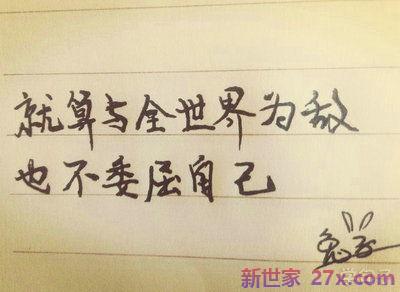 就算与全世界为敌
也不委屈自己
新世家 27x.com